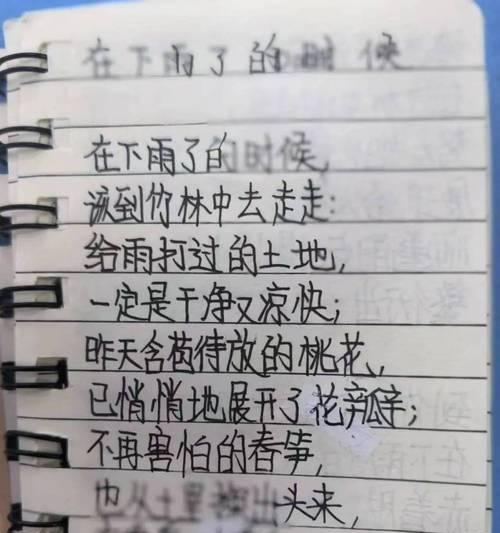 在下雨了的时候
在下雨了的时候,
该到竹林中去走走:
给雨打过的土地,
一定是干净又凉快;
昨天含苞待放的桃花,
已悄悄地展开了花瓣;
不再害怕的春笋,
也从土里 出头来,